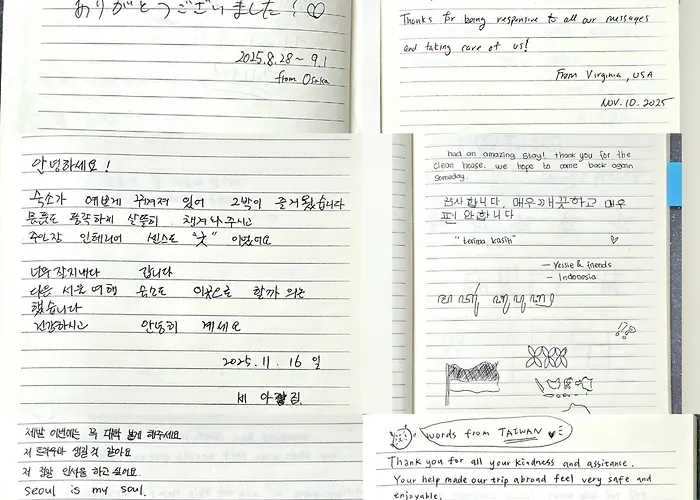 ありがとうございました!♡
2025.8.28~9.1
from Osaka
Thanks for being responsive to all our messages
and taking care of us!
From Virginia, USA
Nov. 10. 2025
안녕하세요!
숙소가 예쁘게 꾸며져 있어 2박이 즐거웠습니다
물품도 풍족하게 살뜰히 챙겨놔주시고
주인장 인테리어 센스도 "굿" 이었어요
너무 잘지내다 갑니다
다음 서울여행 숙소도 이곳으로 할까 의논
했습니다
건강하시고 안녕히 계세요
2025. 11. 16 일
세
had an amazing stay! thank you for the
clean house. we hope to come back again
someday.
감사합니다. 매우 깨끗하고 매우
편안합니다
"terima kasih" ♡
— Yessie & friends
– Indonesia
제발 이번에는 꼭 대박 날게 해주세요
저
저 정말 인사을 하고 싶어요.
Seoul is my soul.
words from TAIWAN ♥
Thank you for all your kindness and assitance.
Your help made our trip abroad feel very safe and
enjoyable.